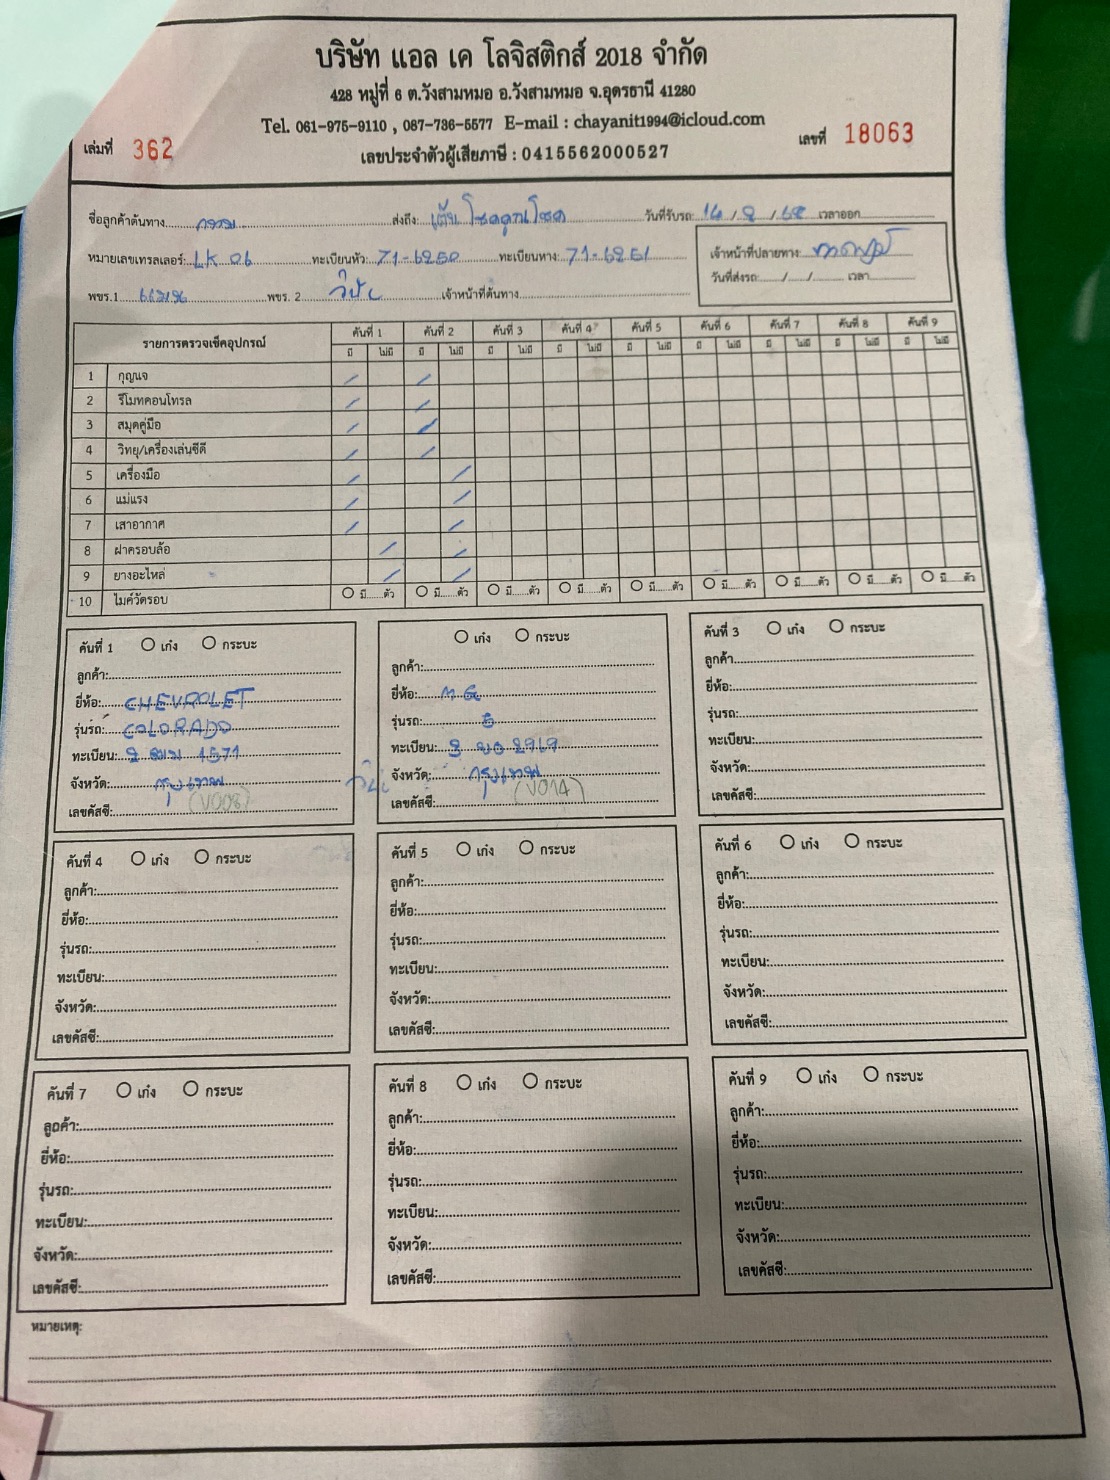 บริษัท แอล เค โลจิสติกส์ 2018 จำกัด
428 หมู่ที่ 6 ต.วังสามหมอ อ.วังสามหมอ จ.อุดรธานี 41280
Tel. 061-975-9110 , 087-736-5577 E-mail : chayanit1994@icloud.com
เล่มที่ 362 เลขประจำตัวผู้เสียภาษี : 0415562000527 เลขที่ 18063
ชื่อลูกค้าต้นทาง ส่งถึง: เต้น โชคคูณโชค วันที่รับรถ: 14 / 2 / 68 เวลาออก
หมายเลขเทรลเลอร์: LK 06 ทะเบียนหัว: 71-6250 ทะเบียนหาง: 71-6251 เจ้าหน้าที่ปลายทาง:
วันที่ส่งรถ: / / เวลา
พขร.1 พขร. 2 เจ้าหน้าที่ต้นทาง
รายการตรวจเช็คอุปกรณ์ คันที่ 1 คันที่ 2 คันที่ 3 คันที่ 4 คันที่ 5 คันที่ 6 คันที่ 7 คันที่ 8 คันที่ 9
มี ไม่มี มี ไม่มี มี ไม่มี มี ไม่มี มี ไม่มี มี ไม่มี มี ไม่มี มี ไม่มี มี ไม่มี
1 กุญแจ / /
2 รีโมทคอนโทรล / /
3 สมุดคู่มือ / /
4 วิทยุ/เครื่องเล่นซีดี / /
5 เครื่องมือ / /
6 แม่แรง / /
7 เสาอากาศ / /
8 ฝาครอบล้อ / /
9 ยางอะไหล่ / /
10 ไมค์วัดรอบ มี ตัว มี ตัว มี ตัว มี ตัว มี ตัว มี ตัว มี ตัว มี ตัว มี ตัว
คันที่ 1 เก๋ง กระบะ
ลูกค้า:
ยี่ห้อ: CHEVROLET
รุ่นรถ: COLORADO
ทะเบียน: 2 ฒฒ 1571
จังหวัด: กรุงเทพ
(V008)
เลขคัสซี:
เก๋ง กระบะ
ลูกค้า:
ยี่ห้อ: MG
รุ่นรถ: 5
ทะเบียน: 3 ขอ 2919
จังหวัด: กรุงเทพ
(V014)
เลขคัสซี:
คันที่ 3 เก๋ง กระบะ
ลูกค้า:
ยี่ห้อ:
รุ่นรถ:
ทะเบียน:
จังหวัด:
เลขคัสซี:
คันที่ 4 เก๋ง กระบะ
ลูกค้า:
ยี่ห้อ:
รุ่นรถ:
ทะเบียน:
จังหวัด:
เลขคัสซี:
คันที่ 5 เก๋ง กระบะ
ลูกค้า:
ยี่ห้อ:
รุ่นรถ:
ทะเบียน:
จังหวัด:
เลขคัสซี:
คันที่ 6 เก๋ง กระบะ
ลูกค้า:
ยี่ห้อ:
รุ่นรถ:
ทะเบียน:
จังหวัด:
เลขคัสซี:
คันที่ 7 เก๋ง กระบะ
ลูกค้า:
ยี่ห้อ:
รุ่นรถ:
ทะเบียน:
จังหวัด:
เลขคัสซี:
คันที่ 8 เก๋ง กระบะ
ลูกค้า:
ยี่ห้อ:
รุ่นรถ:
ทะเบียน:
จังหวัด:
เลขคัสซี:
คันที่ 9 เก๋ง กระบะ
ลูกค้า:
ยี่ห้อ:
รุ่นรถ:
ทะเบียน:
จังหวัด:
เลขคัสซี:
หมายเหตุ: